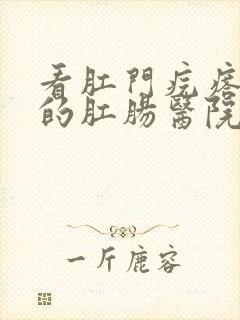 看肛門疙瘩
的肛腸醫院
一斤鹿容